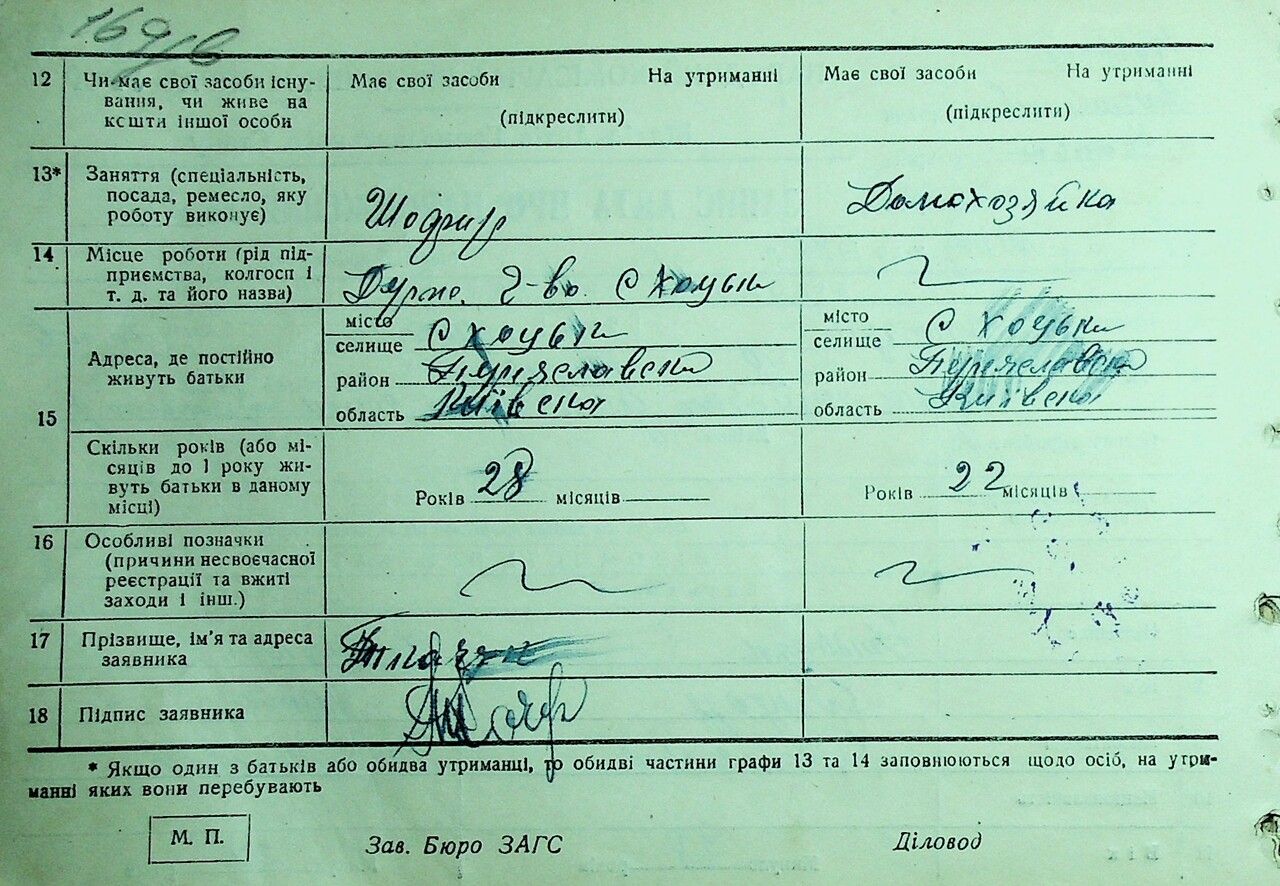 12 Чи має свої засоби існу-
вання, чи живе на
кєшти іншої особи
Має свої засоби На утриманні
(підкреслити)
Має свої засоби На утриманні
(підкреслити)
13* Заняття (спеціальність,
посада, ремесло, яку
роботу виконує)
Шофир
Домохозяйка
14 Місце роботи (рід під-
приємства, колгосп і
т. д. та його назва)
с Хоцьки
15 Адреса, де постійно
живуть батьки
місто
селище с Хоцьки
район Переяславски
область Київской
місто
селище с Хоцьки
район Переяславски
область Київской
Скільки років (або мі-
сяців до 1 року жи-
вуть батьки в даному
місці)
Років 28 місяців
Років 22 місяців
16 Особливі позначки
(причини несвоєчасної
реєстрації та вжиті
заходи і інш.)
17 Прізвище, ім'я та адреса
заявника
18 Підпис заявника
* Якщо один з батьків або обидва утриманці, то обидві частини графи 13 та 14 заповнюються щодо осіб, на утри-
манні яких вони перебувають
М. П. Зав. Бюро ЗАГС Діловод